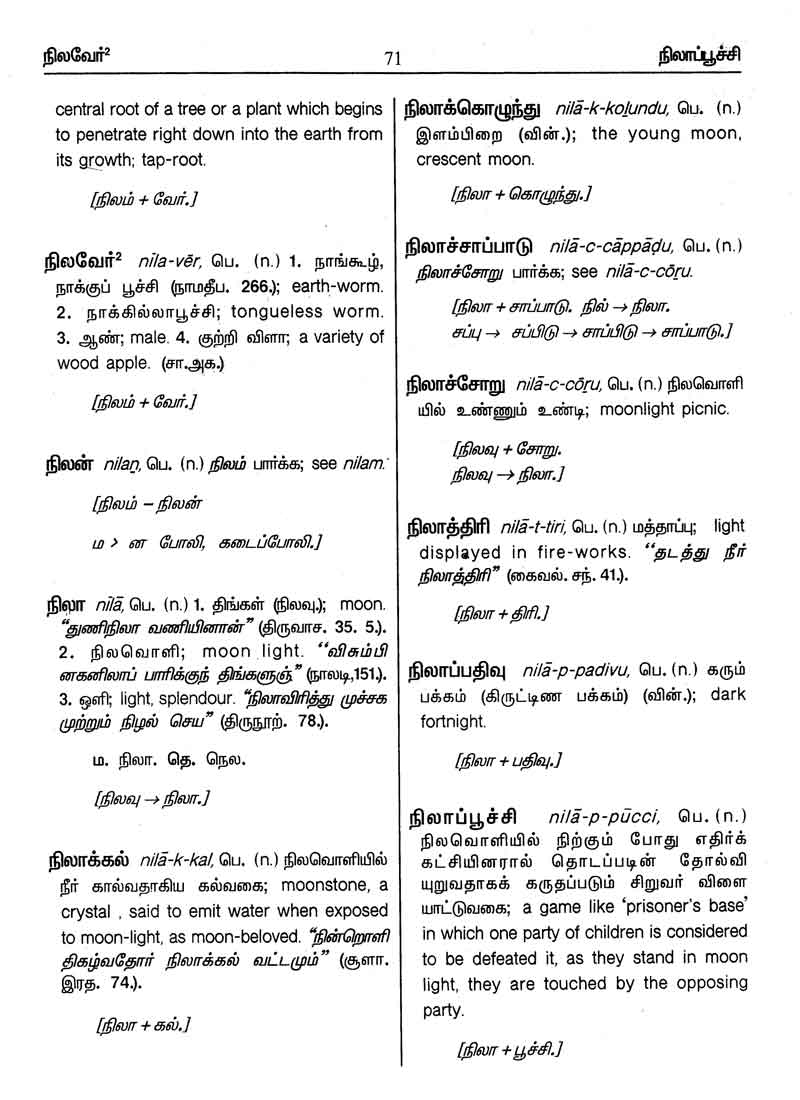 நிலவேர்²
71
நிலாப்பூச்சி
central root of a tree or a plant which begins
to penetrate right down into the earth from
its growth; tap-root.
[நிலம் + வேர்.]
நிலவேர்² nila-vēr, பெ. (n.) 1. நாங்கூழ்,
நாக்குப் பூச்சி (நாமதீப. 266.); earth-worm.
2. நாக்கில்லாபூச்சி; tongueless worm.
3. ஆண்; male. 4. குற்றி விளா; a variety of
wood apple. (சா.அக.)
[நிலம் + வேர்.]
நிலன் nilaṉ, பெ. (n.) நிலம் பார்க்க; see nilam.
[நிலம் – நிலன்
ம > ன போலி, கடைப்போலி.]
நிலா nilā, பெ. (n.) 1. திங்கள் (நிலவு.); moon.
“துணிநிலா வணியினான்” (திருவாச. 35. 5.).
2. நிலவொளி; moon light. “விசும்பி
னகனிலாப் பாரிக்குந் திங்களுஞ்” (நாலடி,151.).
3. ஒளி; light, splendour. “நிலாவிரித்து முச்சக
முற்றும் நிழல் செய” (திருநூற். 78.).
ம. நிலா. தெ. நெல.
[நிலவு → நிலா.]
நிலாக்கல் nilā-k-kal, பெ. (n.) நிலவொளியில்
நீர் கால்வதாகிய கல்வகை; moonstone, a
crystal , said to emit water when exposed
to moon-light, as moon-beloved. “நின்றொளி
திகழ்வதோர் நிலாக்கல் வட்டமும்” (சூளா.
இரத. 74.).
[நிலா + கல்.]
நிலாக்கொழுந்து nilā-k-koḻundu, பெ. (n.)
இளம்பிறை (வின்.); the young moon,
crescent moon.
[நிலா + கொழுந்து.]
நிலாச்சாப்பாடு nilā-c-cāppāḍu, பெ. (n.)
நிலாச்சோறு பார்க்க; see nilā-c-cōṟu.
[நிலா + சாப்பாடு. நில் → நிலா.
சப்பு → சப்பிடு → சாப்பிடு → சாப்பாடு.]
நிலாச்சோறு nilā-c-cōṟu, பெ. (n.) நிலவொளி
யில் உண்ணும் உண்டி; moonlight picnic.
[நிலவு + சோறு.
நிலவு → நிலா.]
நிலாத்திரி nilā-t-tiri, பெ. (n.) மத்தாப்பு; light
displayed in fire-works. “தடத்து நீர்
நிலாத்திரி” (கைவல். சந். 41.).
[நிலா + திரி.]
நிலாப்பதிவு nilā-p-padivu, பெ. (n.) கரும்
பக்கம் (கிருட்டிண பக்கம்) (வின்.); dark
fortnight.
[நிலா + பதிவு.]
நிலாப்பூச்சி nilā-p-pūcci, பெ. (n.)
நிலவொளியில் நிற்கும் போது எதிர்க்
கட்சியினரால் தொடப்படின் தோல்வி
யுறுவதாகக் கருதப்படும் சிறுவர் விளை
யாட்டுவகை; a game like ‘prisoner's base’
in which one party of children is considered
to be defeated it, as they stand in moon
light, they are touched by the opposing
party.
[நிலா + பூச்சி.]